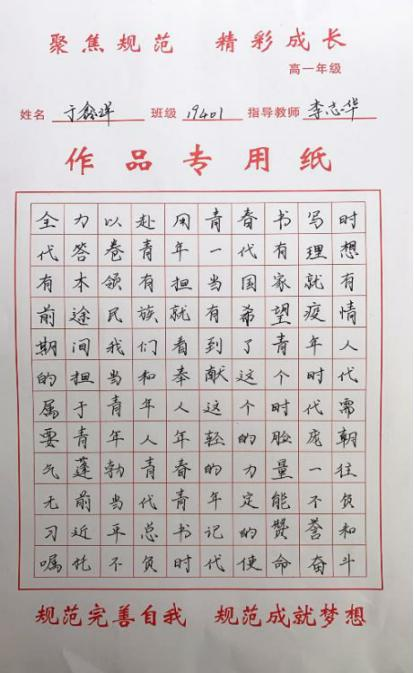 聚焦规范 精彩成长
高一年级
姓名 于鑫洋 班级 19401 指导教师 李志华
作品专用纸
全力以赴用青春书写时
代答卷青年一代有理想
有本领有担当国家就有
前途民族就有希望疫情
期间我们看到了青年人
的担当和奉献这个时代
属于青年人这个时代需
要青年人年轻的脸庞朝
气蓬勃青春的力量一往
无前当代青年定能不负
习近平总书记的赞誉和
嘱托不负时代使命奋斗
规范完善自我 规范成就梦想